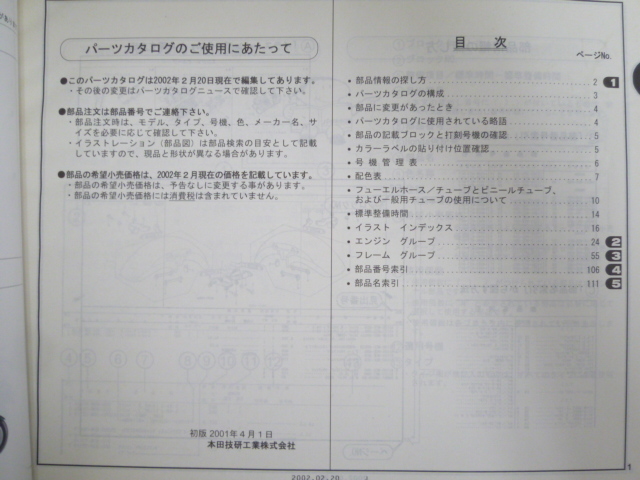 パーツカタログのご使用にあたって
●このパーツカタログは2002年2月20日現在で編集してあります。
・その後の変更はパーツカタログニュースで確認して下さい。
●部品注文は部品番号でご連絡下さい。
・部品注文時は、モデル、タイプ、号機、色、メーカー名、サ
イズを必要に応じて確認して下さい。
・イラストレーション(部品図)は部品検索の目安として記載
していますので、現品と形状が異なる場合があります。
●部品の希望小売価格は、2002年2月現在の価格を記載しています。
・部品の希望小売価格は、予告なしに変更する事があります。
・部品の希望小売価格には消費税は含まれていません。
初版 2001年4月1日
本田技研工業株式会社
目 次
ページNo.
・部品情報の探し方 2 1
・パーツカタログの構成 3
・部品に変更があったとき 4
・パーツカタログに使用されている略語 4
・部品の記載ブロックと打刻号機の確認 5
・カラーラベルの貼り付け位置確認 5
・号機管理表 6
・配色表 7
・フューエルホース/チューブとビニールチューブ、
および一般用チューブの使用について 10
・標準整備時間 14
・イラスト インデックス 16
・エンジン グループ 24 2
・フレーム グループ 55 3
・部品番号索引 106 4
・部品名索引 111 5
2002.02.20
1